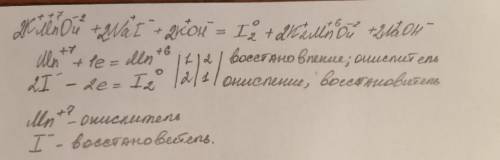 2K⁺Mn⁺⁷O₄⁻² + 2Na⁺I⁻ + 2K⁺OH⁻ = I₂⁰ + 2K₂⁺Mn⁺⁶O₄⁻² + 2Na⁺OH⁻
Mn⁺⁷ + 1e = Mn⁺⁶ | 1 | 2 | восстановление; окислитель
2I⁻ - 2e = I₂⁰ | 2 | 1 | окисление, восстановитель
Mn⁺⁷ - окислитель
I⁻ - восстановетель.